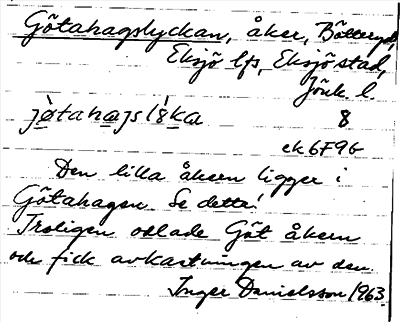 Götahagslyckan, åker, Bötteryd,
Eksjö lfs, Eksjö stad,
Jönk l.
jø̀tahag̀sløk̀a 8
ek 6F9b
Den lilla åkern ligger i
Götahagen. Se detta!
Troligen odlade Göt åkern
och fick avkastningen av den
Inger Danielsson 1963.